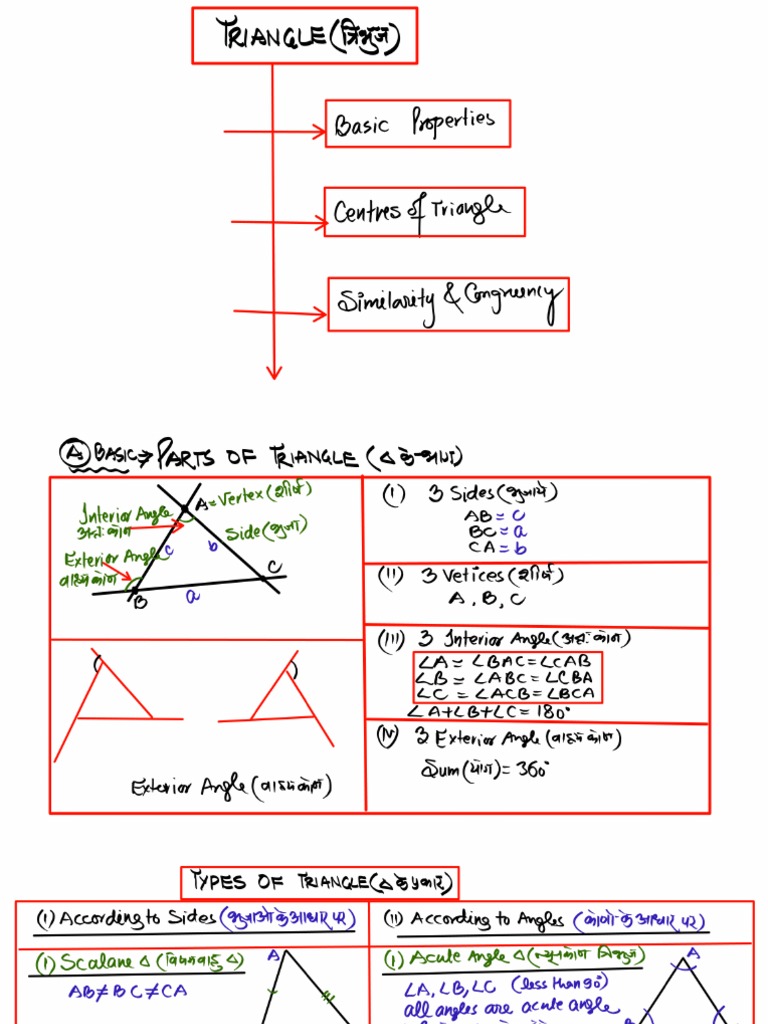 TRIANGLE (त्रिभुज)
Basic Properties
Centres of Triangle
Similarity & Congruency
(A) BASIC → PARTS OF TRIANGLE (Δ के भाग)
A = Vertex (शीर्ष)
Interior Angle
अन्तः कोण
Side (भुजा)
Exterior Angle
बाह्य कोण
c
b
C
B
a
Exterior Angle (बाह्य कोण)
(I) 3 Sides (भुजायें)
AB = c
BC = a
CA = b
(II) 3 Vetices (शीर्ष)
A, B, C
(III) 3 Interior Angle (अन्तः कोण)
∠A = ∠BAC = ∠CAB
∠B = ∠ABC = ∠CBA
∠C = ∠ACB = ∠BCA
∠A + ∠B + ∠C = 180°
(IV) 3 Exterior Angle (बाह्य कोण)
Sum (योग) = 360°
TYPES OF TRIANGLE (Δ के प्रकार)
(I) According to Sides (भुजाओं के आधार पर)
(I) Scalane Δ (विषमबाहु Δ)
AB ≠ BC ≠ CA
A
(II) According to Angles (कोणों के आधार पर)
(I) Acute Angle Δ (न्यूनकोण त्रिभुज)
∠A, ∠B, ∠C (less than 90°)
all angles are acute angle
A